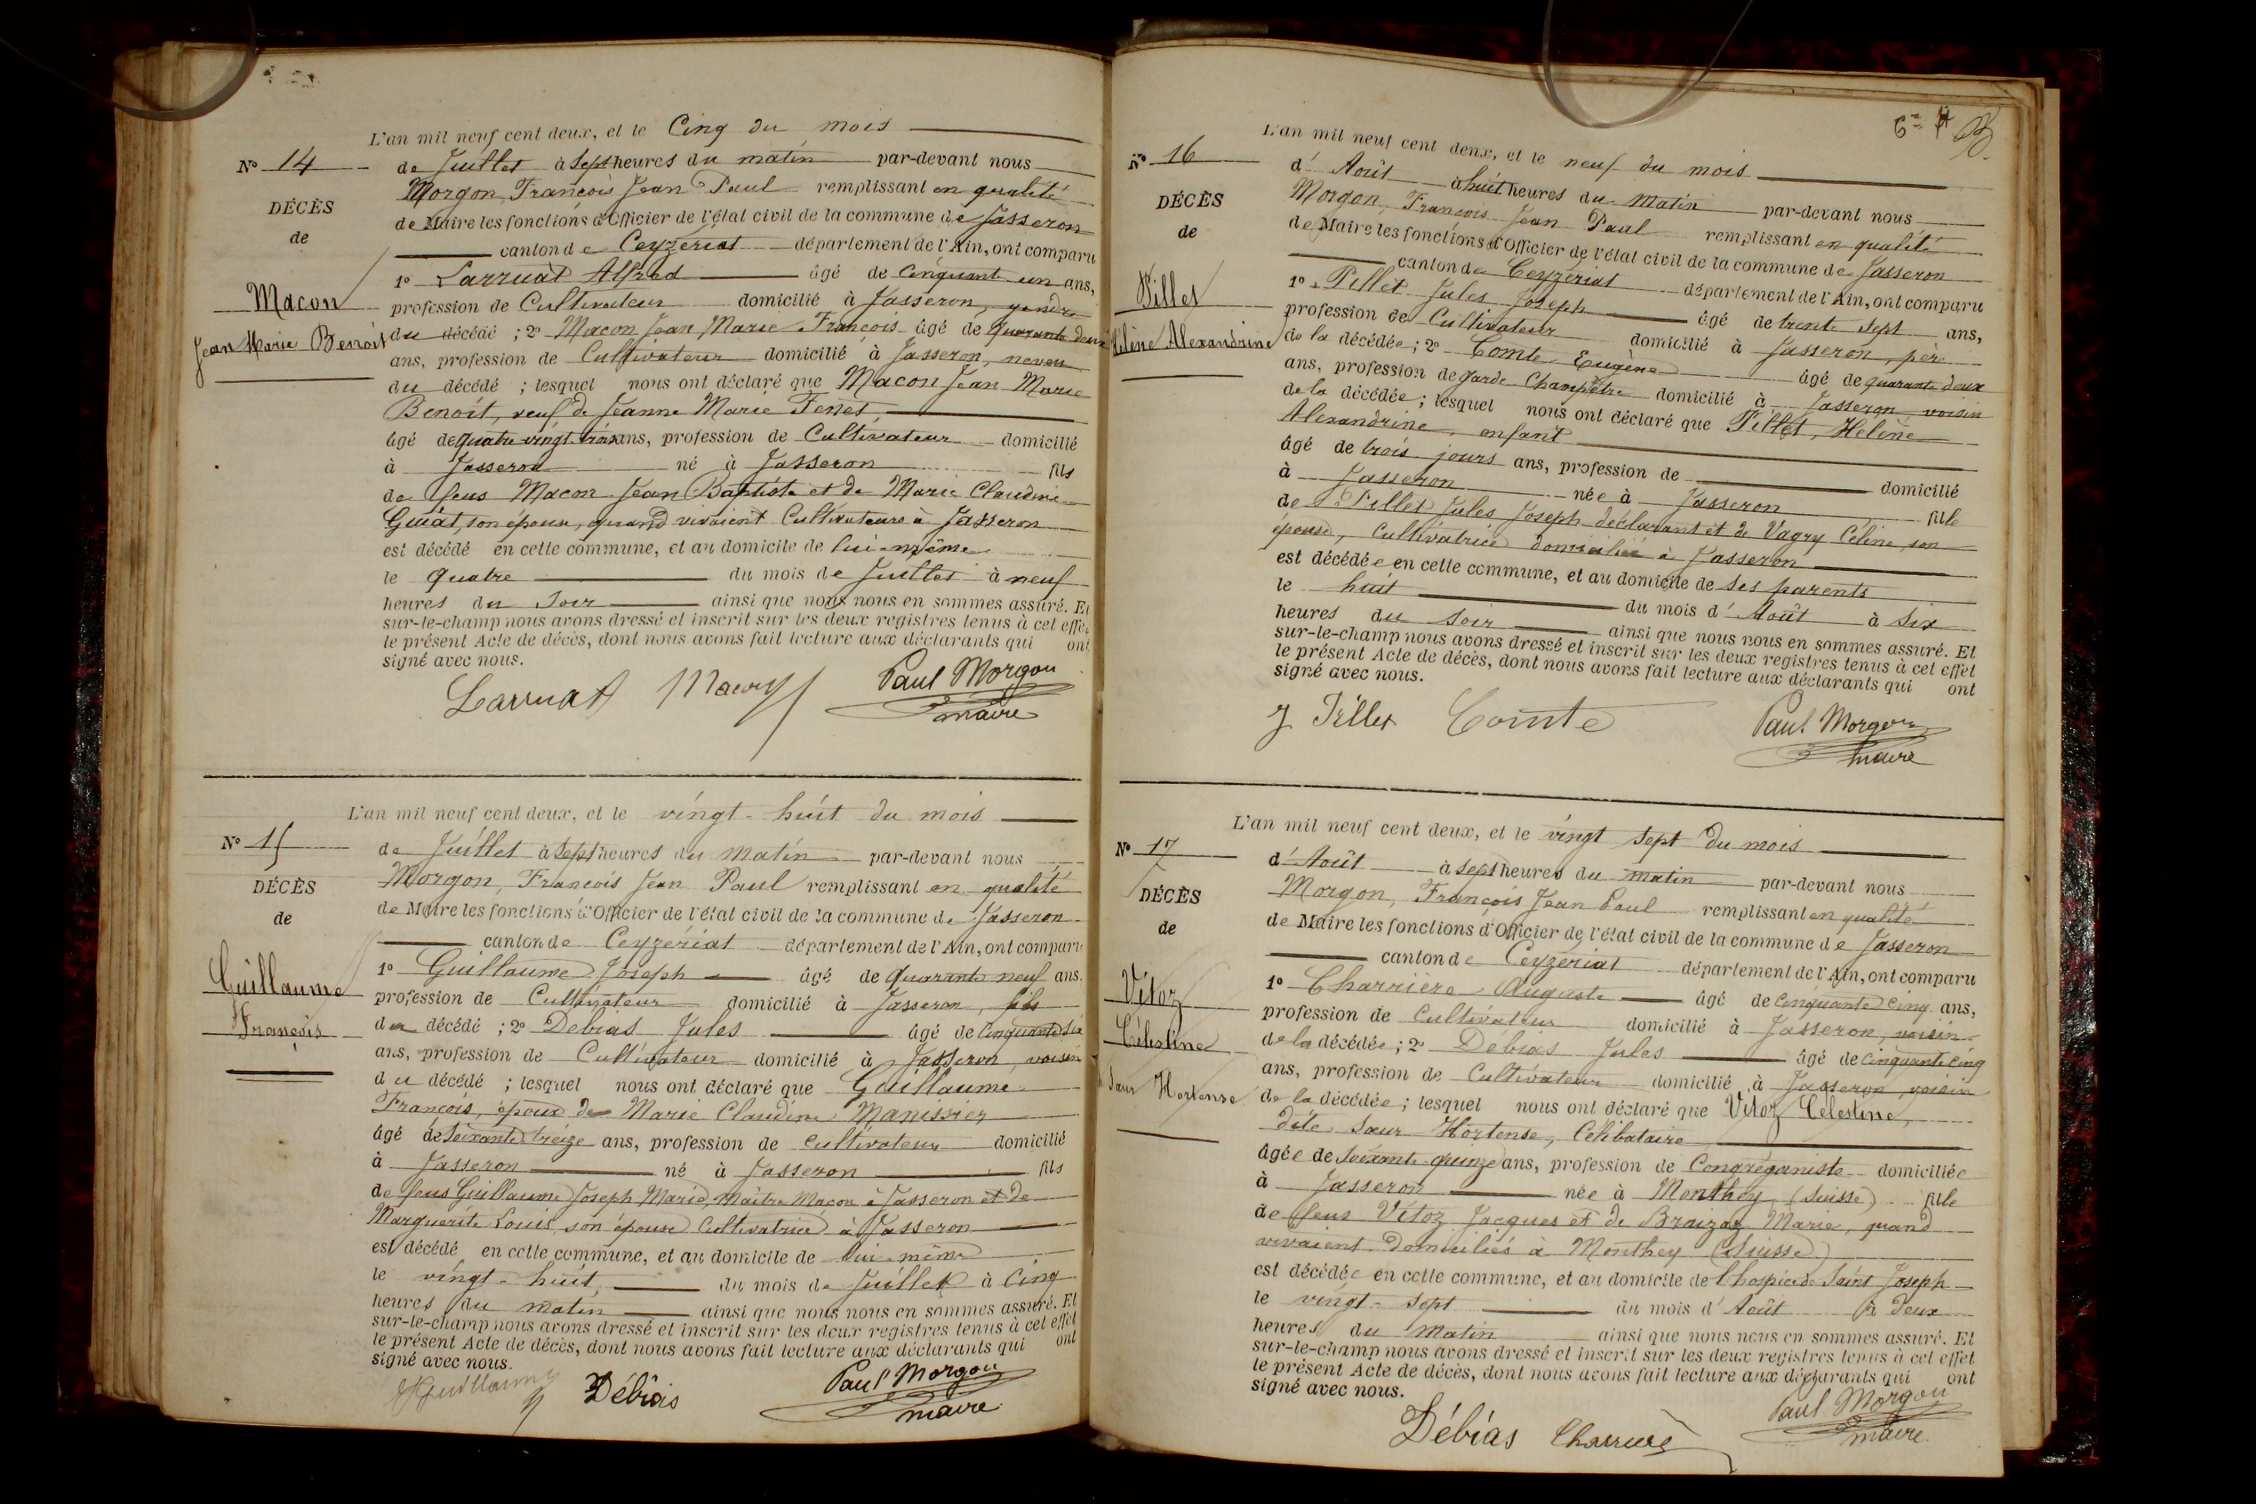 L'an mil neuf cent deux, et le Cinq du mois
No 14
de Juillet à Sept heures du matin par-devant nous
Morgon, François Jean Paul remplissant en qualité
DÉCÈS
de Maire les fonctions d'Officier de l'état civil de la commune de Jasseron
de
canton de Ceyzériat département de l'Ain, ont comparu
1o Larruat Alfred âgé de Cinquant un ans,
Macon
profession de Cultivateur domicilié à Jasseron, gendre
Jean Marie Benoit
du décédé ; 2o Macon Jean Marie François âgé de quarante deux
ans, profession de Cultivateur domicilié à Jasseron, neveu
du décédé ; lesquel nous ont déclaré que Macon Jean Marie
Benoit, veuf de Jeanne Marie Ferret,
âgé de quatre vingt trois ans, profession de Cultivateur domicilié
à Jasseron né à Jasseron fils
de feus Macon Jean Baptiste et de Marie Claudine
Guiat, son épouse, quand vivaient Cultivateurs à Jasseron
est décédé en cette commune, et au domicile de lui-même
le quatre du mois de Juillet à neuf
heures du Soir ainsi que nous nous en sommes assuré. Et
sur-le-champ nous avons dressé et inscrit sur les deux registres tenus à cet effet
le présent Acte de décès, dont nous avons fait lecture aux déclarants qui ont
signé avec nous.
Larruat Macon Paul Morgon
maire
L'an mil neuf cent deux, et le vingt-huit du mois
No 15
de Juillet à Sept heures du matin par-devant nous
Morgon, François Jean Paul remplissant en qualité
DÉCÈS
de Maire les fonctions d'Officier de l'état civil de la commune de Jasseron
de
canton de Ceyzériat département de l'Ain, ont comparu
1o Guillaume Joseph âgé de quarante neuf ans.
Guillaume
profession de Cultivateur domicilié à Jasseron, fils
François
du décédé ; 2o Debias Jules âgé de Cinquante six
ans, profession de Cultivateur domicilié à Jasseron, voisin
du décédé ; lesquel nous ont déclaré que Guillaume
François, époux de Marie Claudine Manissier
âgé de Soixante treize ans, profession de Cultivateur domicilié
à Jasseron né à Jasseron fils
de feus Guillaume Joseph Marie, Maître Maçon à Jasseron et de
Marguerite Louis son épouse Cultivatrice à Jasseron
est décédé en cette commune, et au domicile de lui-même
le vingt-huit, du mois de Juillet à Cinq
heures du matin ainsi que nous nous en sommes assuré. Et
sur-le-champ nous avons dressé et inscrit sur les deux registres tenus à cet effet
le présent Acte de décès, dont nous avons fait lecture aux déclarants qui ont
signé avec nous.
Guillaume Débias Paul Morgon
maire
L'an mil neuf cent deux, et le neuf du mois
No 16
d'Août à huit heures du matin par-devant nous
Morgon, François Jean Paul remplissant en qualité
DÉCÈS
de Maire les fonctions d'Officier de l'état civil de la commune de Jasseron
de
canton de Ceyzériat département de l'Ain, ont comparu
1o Pillet Jules Joseph âgé de trente sept ans,
Pillet
profession de Cultivateur domicilié à Jasseron, père
Hélène Alexandrine
de la décédée ; 2o Comte Eugène âgé de quarante deux
ans, profession de garde Champêtre domicilié à Jasseron, voisin
de la décédée ; lesquel nous ont déclaré que Pillet, Hélène
Alexandrine, enfant
âgé de trois jours ans, profession de domicilié
à Jasseron née à Jasseron fille
de Pillet Jules Joseph déclarant et de Vagry Céline, son
épouse, Cultivatrice domiciliée à Jasseron
est décédée en cette commune, et au domicile de ses parents
le huit du mois d'Août à Six
heures du soir ainsi que nous nous en sommes assuré. Et
sur-le-champ nous avons dressé et inscrit sur les deux registres tenus à cet effet
le présent Acte de décès, dont nous avons fait lecture aux déclarants qui ont
signé avec nous.
J Pillet Comte Paul Morgon
maire
L'an mil neuf cent deux, et le vingt sept du mois
No 17
d'Août à sept heures du matin par-devant nous
Morgon, François Jean Paul remplissant en qualité
DÉCÈS
de Maire les fonctions d'Officier de l'état civil de la commune de Jasseron
de
canton de Ceyzériat département de l'Ain, ont comparu
1o Charrière Auguste âgé de Cinquante cinq ans,
Vitoz
profession de Cultivateur domicilié à Jasseron, voisin
Célestine
de la décédée ; 2o Débias Jules âgé de cinquante cinq
ans, profession de Cultivateur domicilié à Jasseron, voisin
Sœur Hortense
de la décédée ; lesquel nous ont déclaré que Vitoz Célestine,
dite Sœur Hortense, Célibataire
âgée de Soixante quinze ans, profession de Congréganiste domiciliée
à Jasseron née à Monthey (Suisse) fille
de feus Vitoz Jacques et de Braizaz Marie, quand
vivaient domiciliés à Monthey (Suisse)
est décédée en cette commune, et au domicile de l'hospice de Saint Joseph
le vingt-sept du mois d'Août à deux
heures du matin ainsi que nous nous en sommes assuré. Et
sur-le-champ nous avons dressé et inscrit sur les deux registres tenus à cet effet
le présent Acte de décès, dont nous avons fait lecture aux déclarants qui ont
signé avec nous.
Débias Charrière Paul Morgon
maire